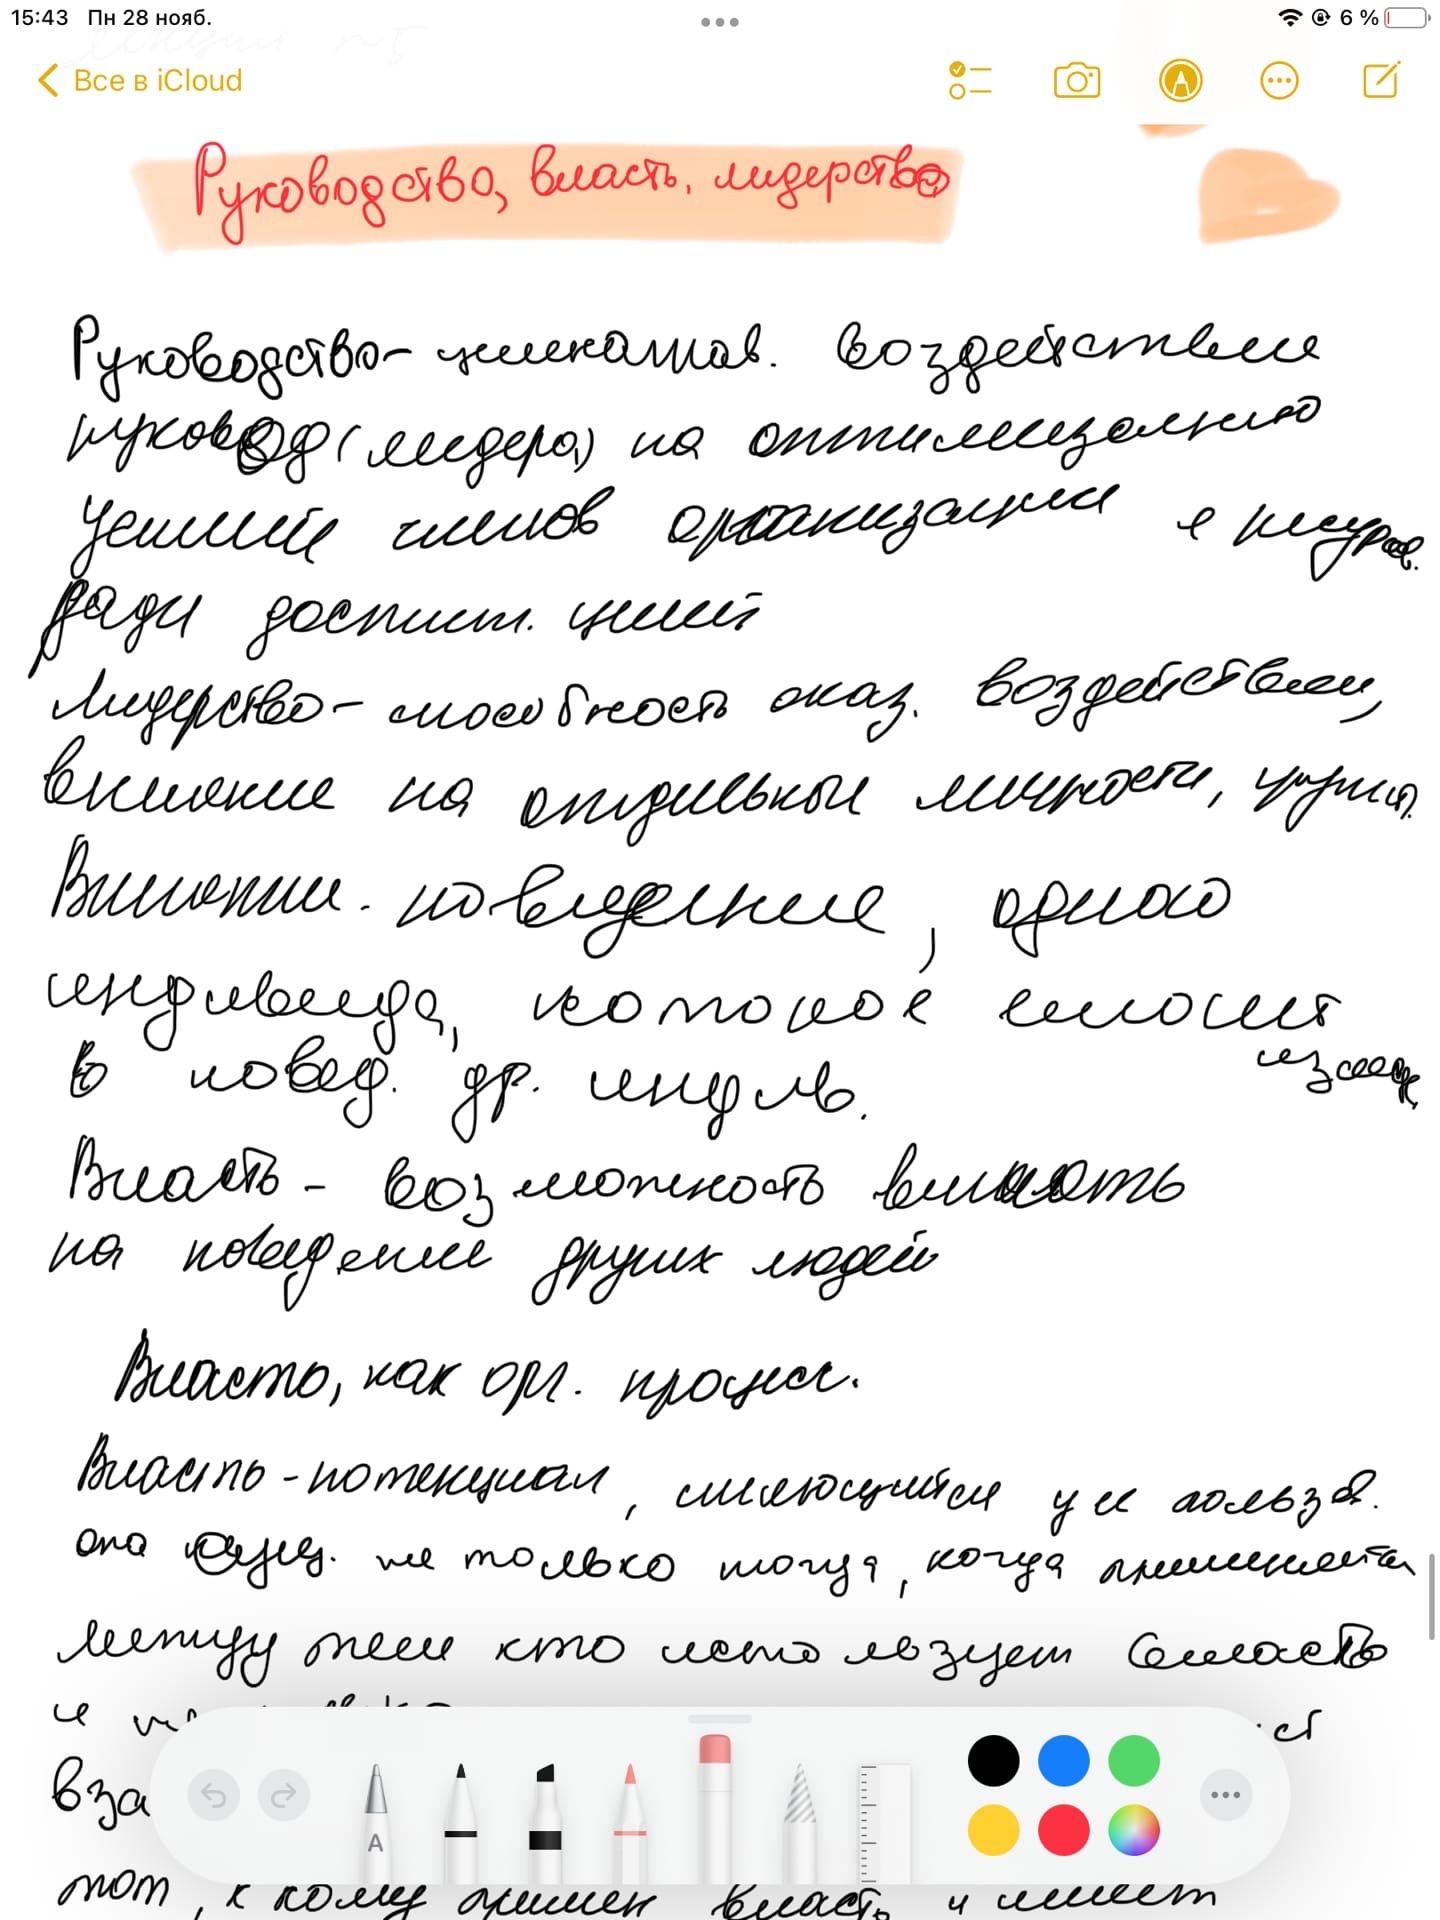 15:43 Пн 28 нояб. 6 %
Все в iCloud
Руководство, власть, лидерство
Руководство- целенаправ. воздействие
руковод(лидера) на оптимизацию
усилий членов организации и ресурсов.
ради достиж. целей
Лидерство- способность оказ. воздействие,
влияние на отдельные личности, группы.
Влияние - поведение, одного
индивида, которое вносит
измен.
в повед. др. индив.
Власть - возможность влиять
на поведение других людей
Власть, как орг. процесс.
Власть-потенциал, имеющийся у её польз.
она сущ. не только тогда, когда применяется
между тем кто использует власть
и
вза
тот, к кому примен власть и имеет
A